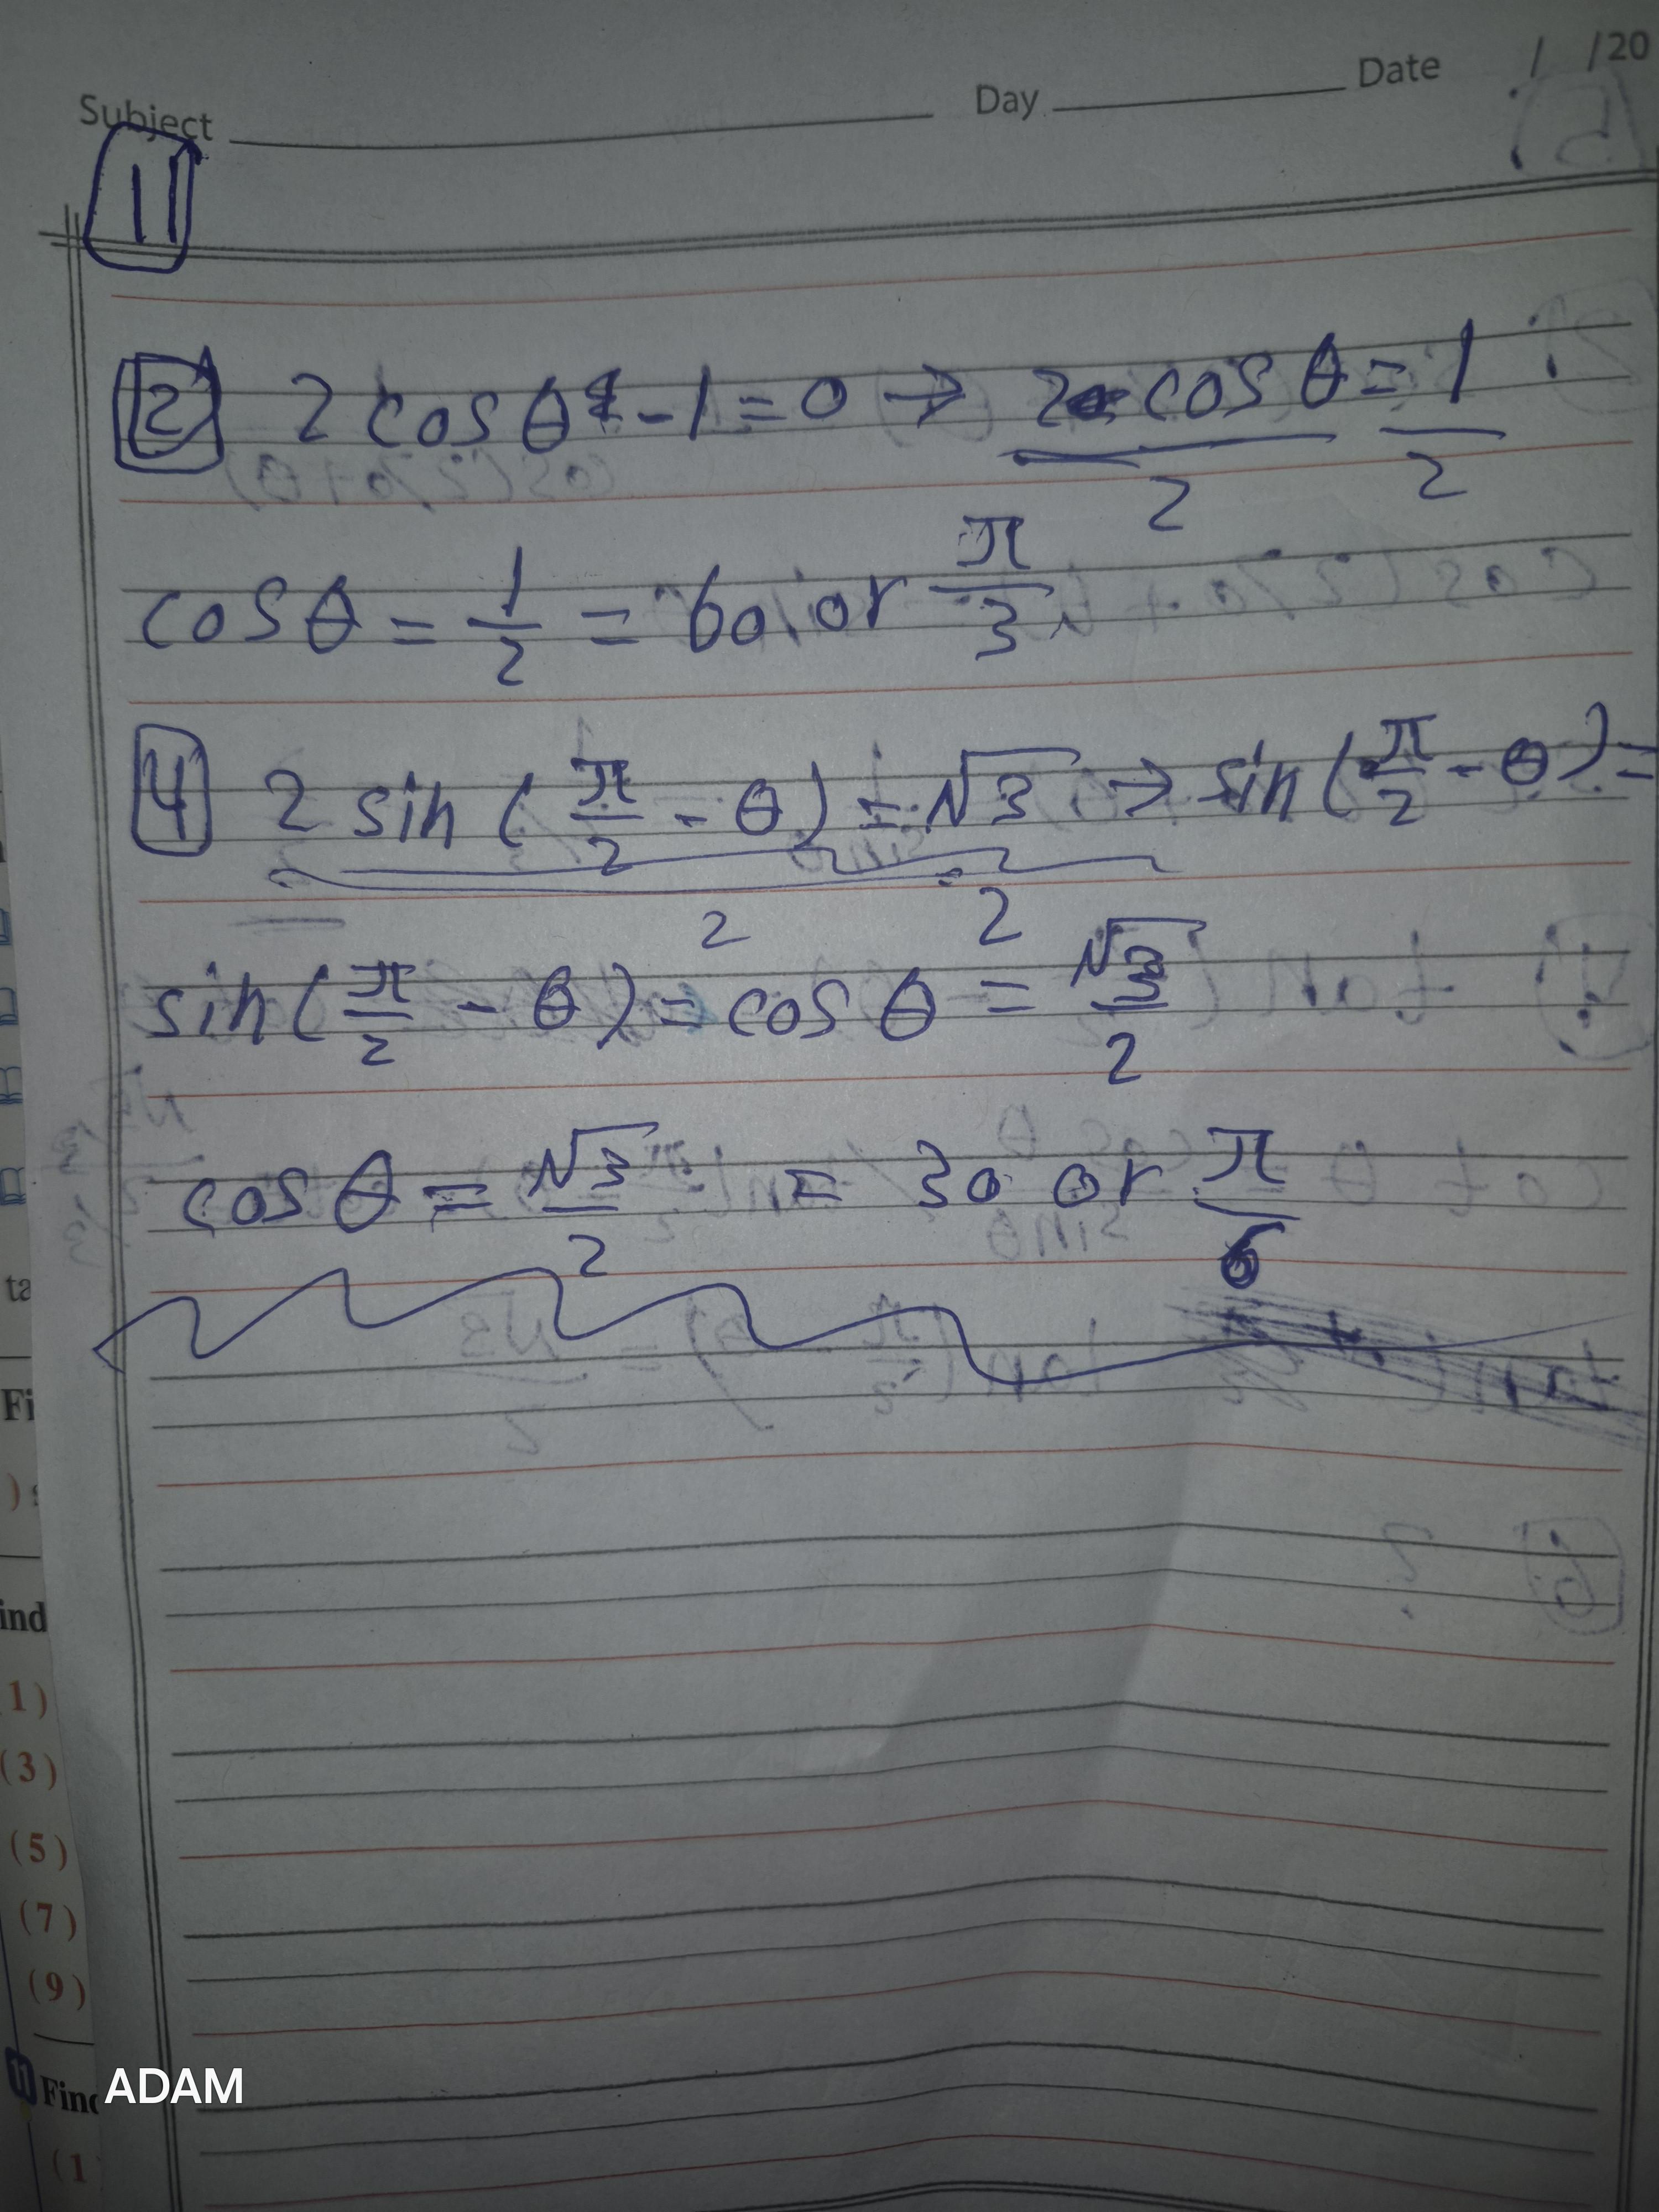 Subject Day Date / /20
11
2 2 cos θ - 1 = 0 → 2 cos θ / 2 = 1 / 2
cos θ = 1/2 = 60 or π/3
4 2 sin (π/2 - θ) / 2 = √3 / 2 → sin (π/2 - θ) =
sin (π/2 - θ) = cos θ = √3/2
cos θ = √3/2 = 30 or π/6
ta
Fi
ind
1)
(3)
(5)
(7)
(9)
11 Find
(1
ADAM